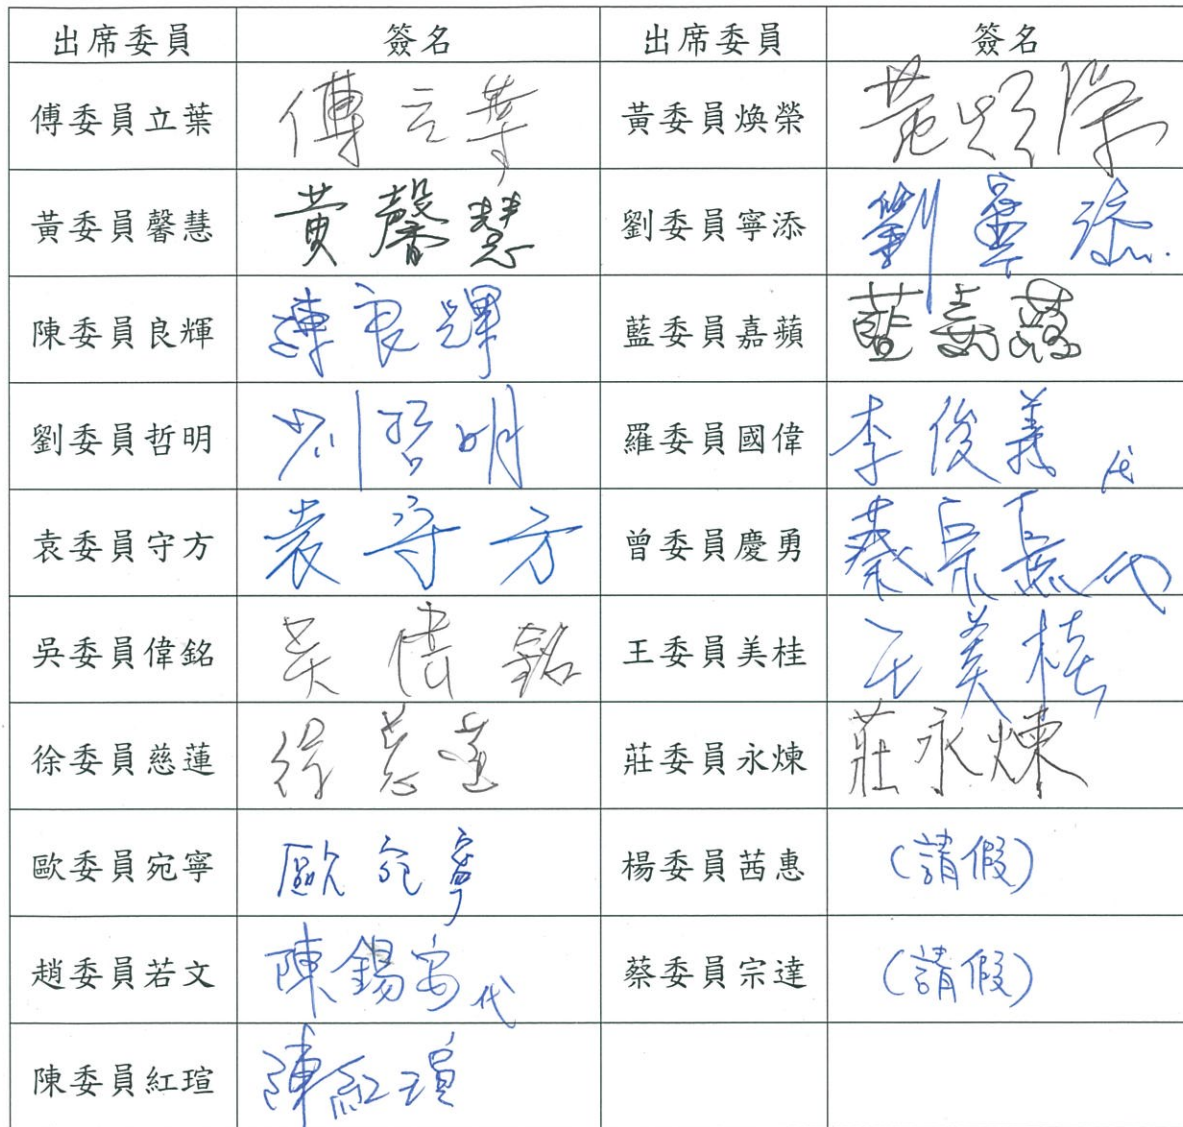 出席委員 簽名 出席委員 簽名
傅委員立葉 傅立葉 黃委員煥榮 黃煥榮
黃委員馨慧 黃馨慧 劉委員寧添 劉寧添
陳委員良輝 陳良輝 藍委員嘉蘋 藍嘉蘋
劉委員哲明 刘哲明 羅委員國偉 李俊義 代
袁委員守方 袁守方 曾委員慶勇 蔡 代
吳委員偉銘 吳偉銘 王委員美桂 王美桂
徐委員慈蓮 徐慈蓮 莊委員永煉 莊永煉
歐委員宛寧 歐宛寧 楊委員茜惠 (請假)
趙委員若文 陳錫安 代 蔡委員宗達 (請假)
陳委員紅瑄 陳紅瑄